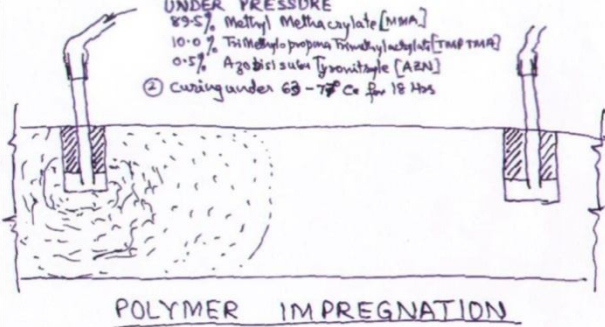 UNDER PRESSURE
89.5% Methyl Methacrylate [MMA]
10.0% TriMethylopropma Trimethylacrylate [TMPTMA]
0.5% Azobisisubu Tyronitryle [AZN]
② Curing under 63-77° Ce for 18 Hrs
POLYMER IMPREGNATION